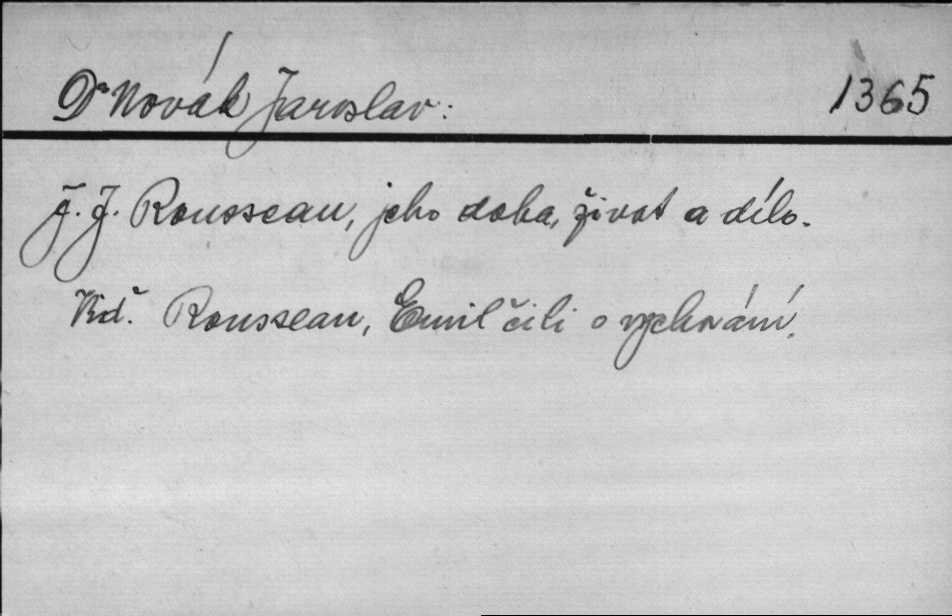 Dr Novák Jaroslav: 1365
J. J. Rousseau, jeho doba, život a dílo.
Viď. Rousseau, Emil čili o vychování.